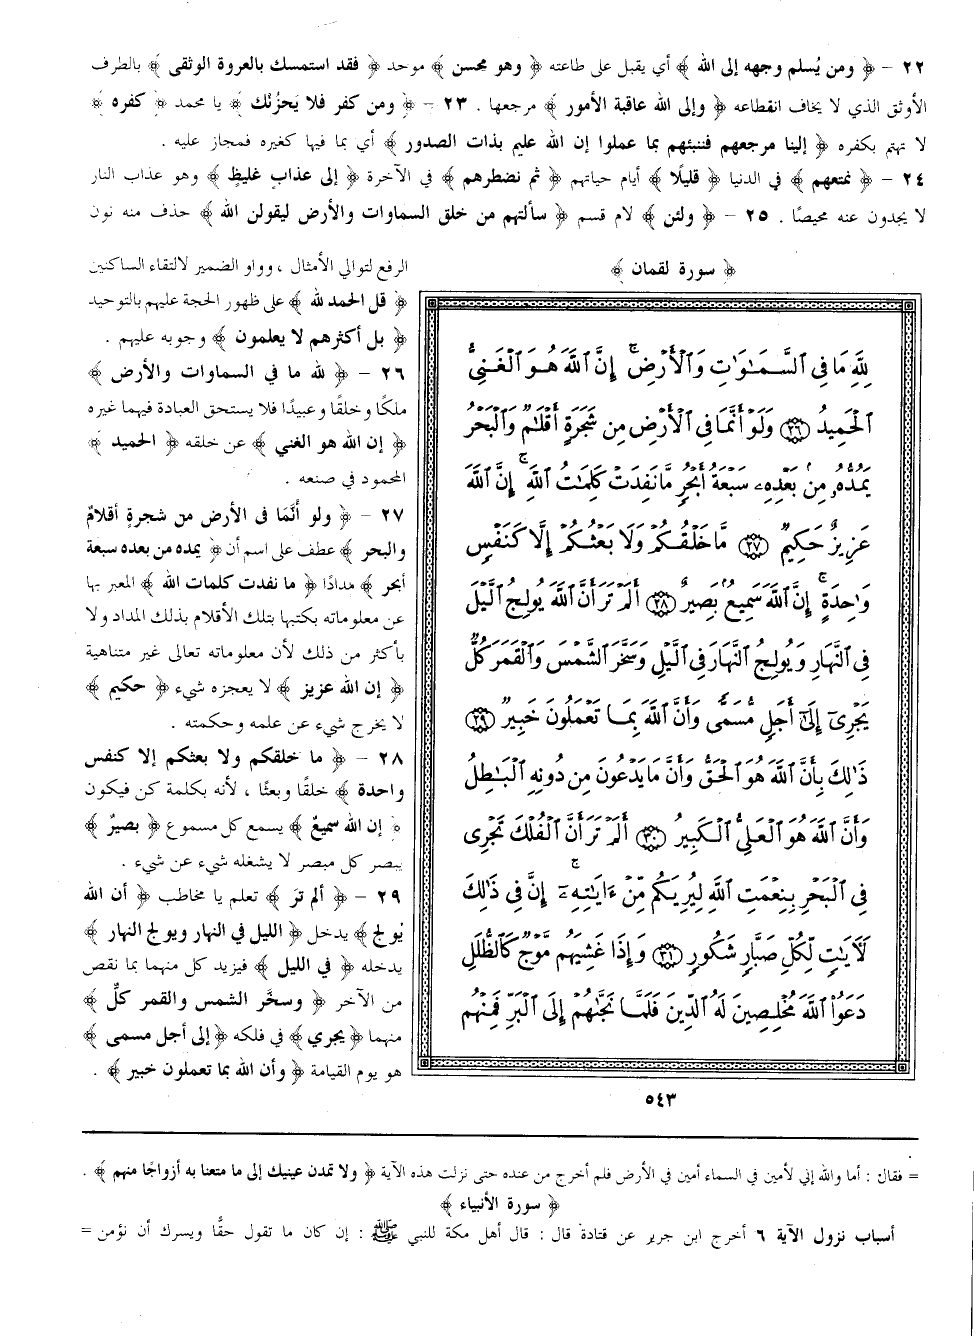 ٢٢ – ﴿ ومن يُسلم وجهه إلى الله ﴾ أي يقبل على طاعته ﴿ وهو محسن ﴾ موحد ﴿ فقد استمسك بالعروة الوثقى ﴾ بالطرف
الأوثق الذي لا يخاف انقطاعه ﴿ وإلى الله عاقبة الأمور ﴾ مرجعها . ٢٣ – ﴿ ومن كفر فلا يَحزُنْك ﴾ يا محمد ﴿ كفره ﴾
لا تهتم بكفره ﴿ إلينا مرجعهم فننبئهم بما عملوا إن الله عليم بذات الصدور ﴾ أي بما فيها كغيره فمجاز عليه .
٢٤ – ﴿ نمتعهم ﴾ في الدنيا ﴿ قليلًا ﴾ أيام حياتهم ﴿ ثم نضطرهم ﴾ في الآخرة ﴿ إلى عذابٍ غليظٍ ﴾ وهو عذاب النار
لا يجدون عنه محيصًا . ٢٥ – ﴿ ولئن ﴾ لام قسم ﴿ سألتهم من خلق السماوات والأرض ليقولن الله ﴾ حذف منه نون
الرفع لتوالي الأمثال ، وواو الضمير لالتقاء الساكنين
﴿ قل الحمد لله ﴾ على ظهور الحجة عليهم بالتوحيد
﴿ بل أكثرهم لا يعلمون ﴾ وجوبه عليهم .
٢٦ – ﴿ لله ما في السماوات والأرض ﴾
ملكًا وخلقًا وعبيدًا فلا يستحق العبادة فيهما غيره
﴿ إن الله هو الغني ﴾ عن خلقه ﴿ الحميد ﴾
المحمود في صنعه .
٢٧ – ﴿ ولو أنَّمَا في الأرض من شجرةٍ أقلامٌ
والبحر ﴾ عطف على اسم أن ﴿ يمده من بعده سبعة
أبحر ﴾ مدادًا ﴿ ما نفدت كلمات الله ﴾ المعبر بها
عن معلوماته بكتبها بتلك الأقلام بذلك المداد ولا
بأكثر من ذلك لأن معلوماته تعالى غير متناهية
﴿ إن الله عزيز ﴾ لا يعجزه شيء ﴿ حكيم ﴾
لا يخرج شيء عن علمه وحكمته .
٢٨ – ﴿ ما خلقكم ولا بعثكم إلا كنفس
واحدة ﴾ خلقًا وبعثًا ، لأنه بكلمة كن فيكون
﴿ إن الله سميعٌ ﴾ يسمع كل مسموع ﴿ بصيرٌ ﴾
يبصر كل مبصر لا يشغله شيء عن شيء .
٢٩ – ﴿ ألم ترَ ﴾ تعلم يا مخاطب ﴿ أن الله
يُولج ﴾ يدخل ﴿ الليل في النهار ويولج النهار ﴾
يدخله ﴿ في الليل ﴾ فيزيد كل منهما بما نقص
من الآخر ﴿ وسخَّر الشمس والقمر كلٌّ ﴾
منهما ﴿ يجري ﴾ في فلكه ﴿ إلى أجل مسمى ﴾
هو يوم القيامة ﴿ وأن الله بما تعملون خبير ﴾ .
﴿ سورة لقمان ﴾
لِلَّهِ مَا فِى ٱلسَّمَٰوَٰتِ وَٱلْأَرْضِ ۚ إِنَّ ٱللَّهَ هُوَ ٱلْغَنِىُّ
ٱلْحَمِيدُ ۝٢٦ وَلَوْ أَنَّمَا فِى ٱلْأَرْضِ مِن شَجَرَةٍ أَقْلَٰمٌ وَٱلْبَحْرُ
يَمُدُّهُۥ مِنۢ بَعْدِهِۦ سَبْعَةُ أَبْحُرٍ مَّا نَفِدَتْ كَلِمَٰتُ ٱللَّهِ ۗ إِنَّ ٱللَّهَ
عَزِيزٌ حَكِيمٌ ۝٢٧ مَّا خَلْقُكُمْ وَلَا بَعْثُكُمْ إِلَّا كَنَفْسٍ
وَٰحِدَةٍ ۗ إِنَّ ٱللَّهَ سَمِيعٌۢ بَصِيرٌ ۝٢٨ أَلَمْ تَرَ أَنَّ ٱللَّهَ يُولِجُ ٱلَّيْلَ
فِى ٱلنَّهَارِ وَيُولِجُ ٱلنَّهَارَ فِى ٱلَّيْلِ وَسَخَّرَ ٱلشَّمْسَ وَٱلْقَمَرَ كُلٌّ
يَجْرِىٓ إِلَىٰٓ أَجَلٍ مُّسَمًّى وَأَنَّ ٱللَّهَ بِمَا تَعْمَلُونَ خَبِيرٌ ۝٢٩
ذَٰلِكَ بِأَنَّ ٱللَّهَ هُوَ ٱلْحَقُّ وَأَنَّ مَا يَدْعُونَ مِن دُونِهِ ٱلْبَٰطِلُ
وَأَنَّ ٱللَّهَ هُوَ ٱلْعَلِىُّ ٱلْكَبِيرُ ۝٣٠ أَلَمْ تَرَ أَنَّ ٱلْفُلْكَ تَجْرِى
فِى ٱلْبَحْرِ بِنِعْمَتِ ٱللَّهِ لِيُرِيَكُم مِّنْ ءَايَٰتِهِۦٓ ۚ إِنَّ فِى ذَٰلِكَ
لَءَايَٰتٍ لِّكُلِّ صَبَّارٍ شَكُورٍ ۝٣١ وَإِذَا غَشِيَهُم مَّوْجٌ كَٱلظُّلَلِ
دَعَوُا۟ ٱللَّهَ مُخْلِصِينَ لَهُ ٱلدِّينَ فَلَمَّا نَجَّىٰهُمْ إِلَى ٱلْبَرِّ فَمِنْهُم
٥٤٣
= فقال : أما والله إني لأمين في السماء أمين في الأرض فلم أخرج من عنده حتى نزلت هذه الآية ﴿ ولا تمدن عينيك إلى ما متعنا به أزواجًا منهم ﴾ .
﴿ سورة الأنبياء ﴾
أسباب نزول الآية ٦ أخرج ابن جرير عن قتادة قال : قال أهل مكة للنبي ﷺ : إن كان ما تقول حقًّا ويسرك أن نؤمن =